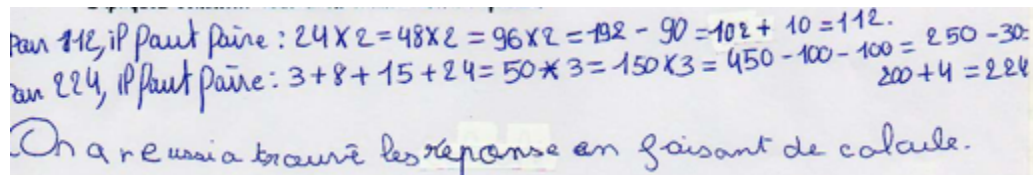 Pour 112, il faut faire : 24 x 2 = 48 x 2 = 96 x 2 = 192 - 90 = 102 + 10 = 112.
Pour 224, il faut faire : 3 + 8 + 15 + 24 = 50 x 3 = 150 x 3 = 450 - 100 - 100 = 250 - 30 =
200 + 4 = 224
On a reussi a trouvé les réponse en faisant de calcule.